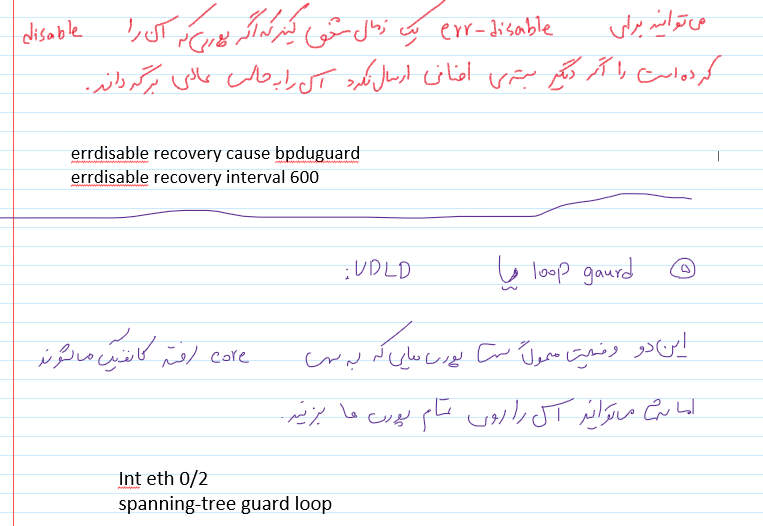 می توانید برای err-disable یک زمان مشخص کنید که اگر پورتی که آن را disable
کرده است را اگر دیگر بسته ی اضافی ارسال نکرد آن را به حالت عادی برگرداند.
errdisable recovery cause bpduguard
errdisable recovery interval 600
۵ loop gaurd و یا UDLD:
این دو وضعیت معمولاً سمت پورت هایی که به سمت core رفته کانفیگ میشوند
اما شما میتوانید آن را روی تمام پورت ها بزنید.
Int eth 0/2
spanning-tree guard loop